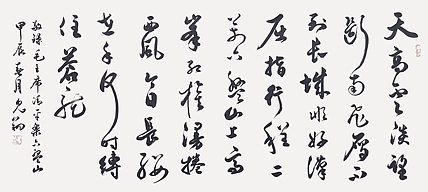 天高云淡望
断南飞雁不
到长城非好汉
屈指行程二
万六盘山上高
峰红旗漫卷
西风今日长缨
在手何时缚
住苍龙
敬录毛主席清平乐六盘山
甲辰春月